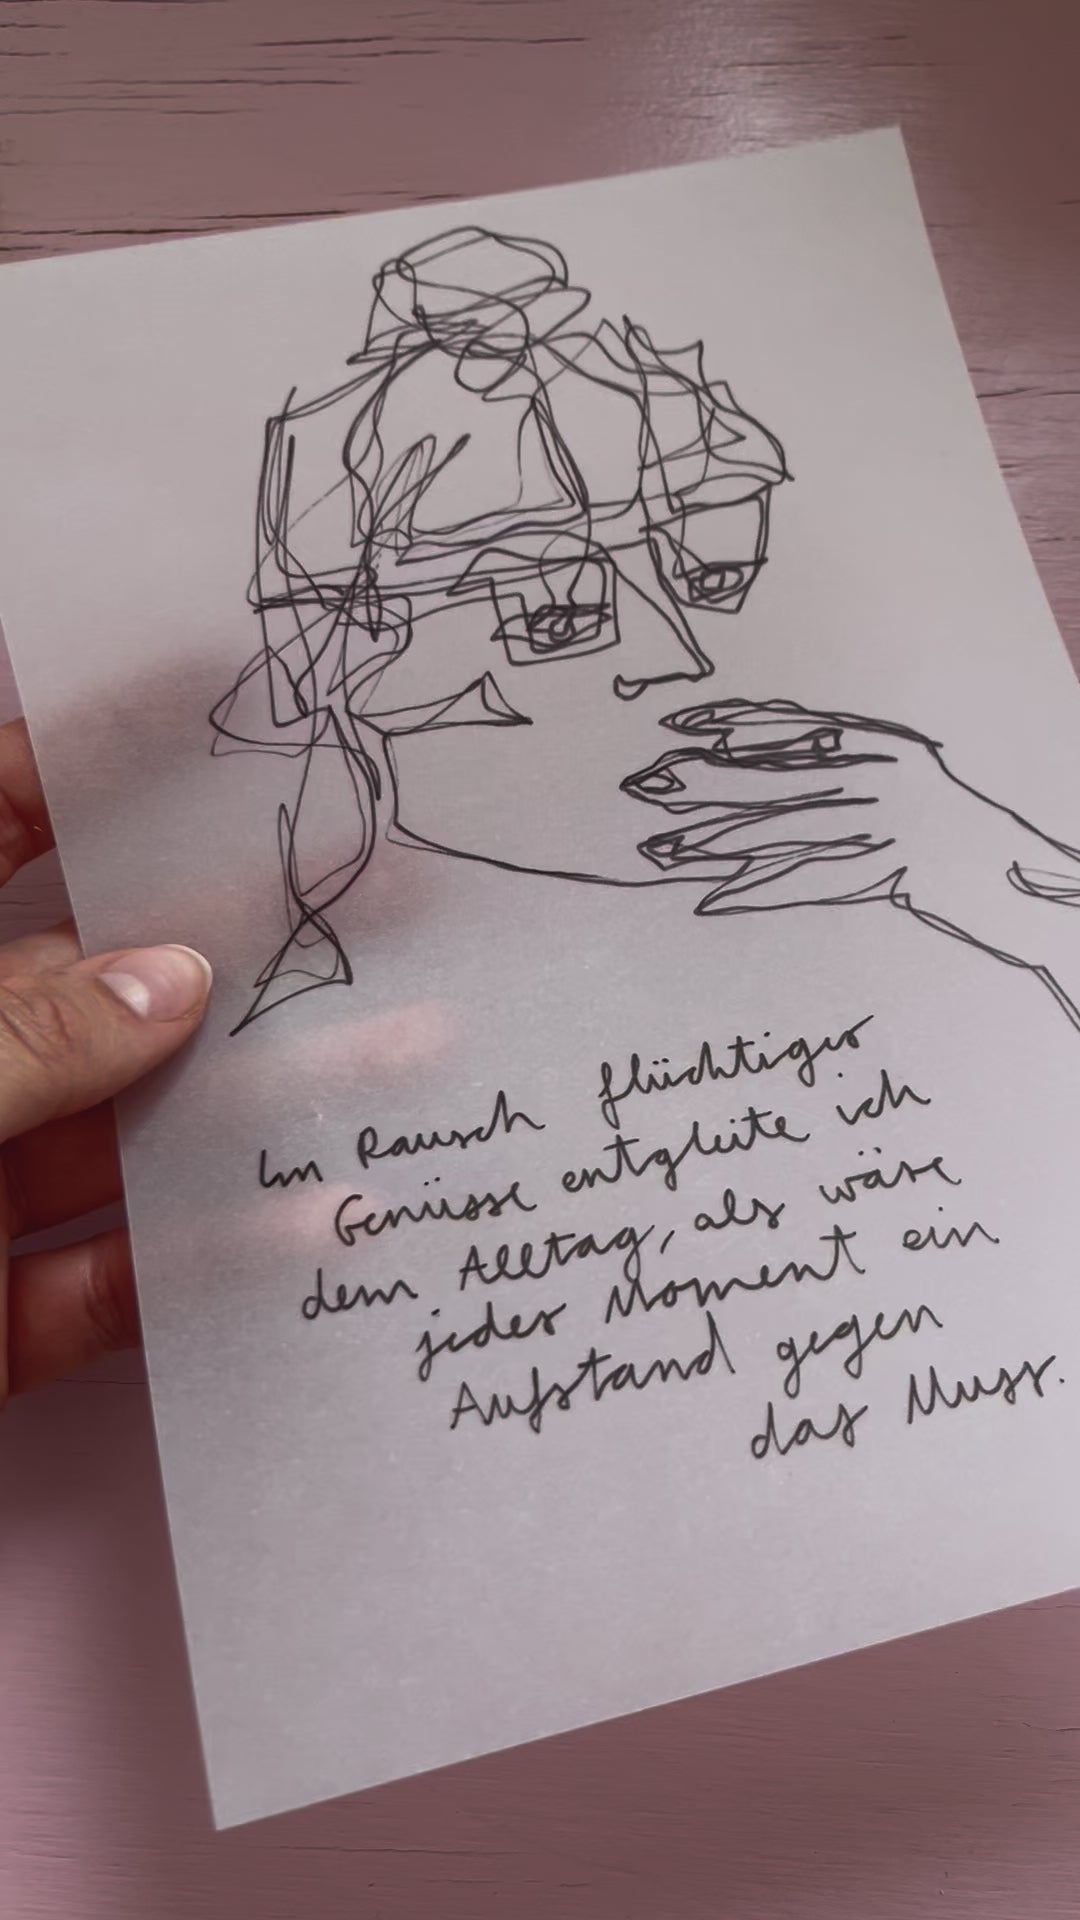 Im Rausch flüchtiger
Genüsse entgleite ich
dem Alltag, als wäre
jeder Moment ein
Aufstand gegen
das Muss.